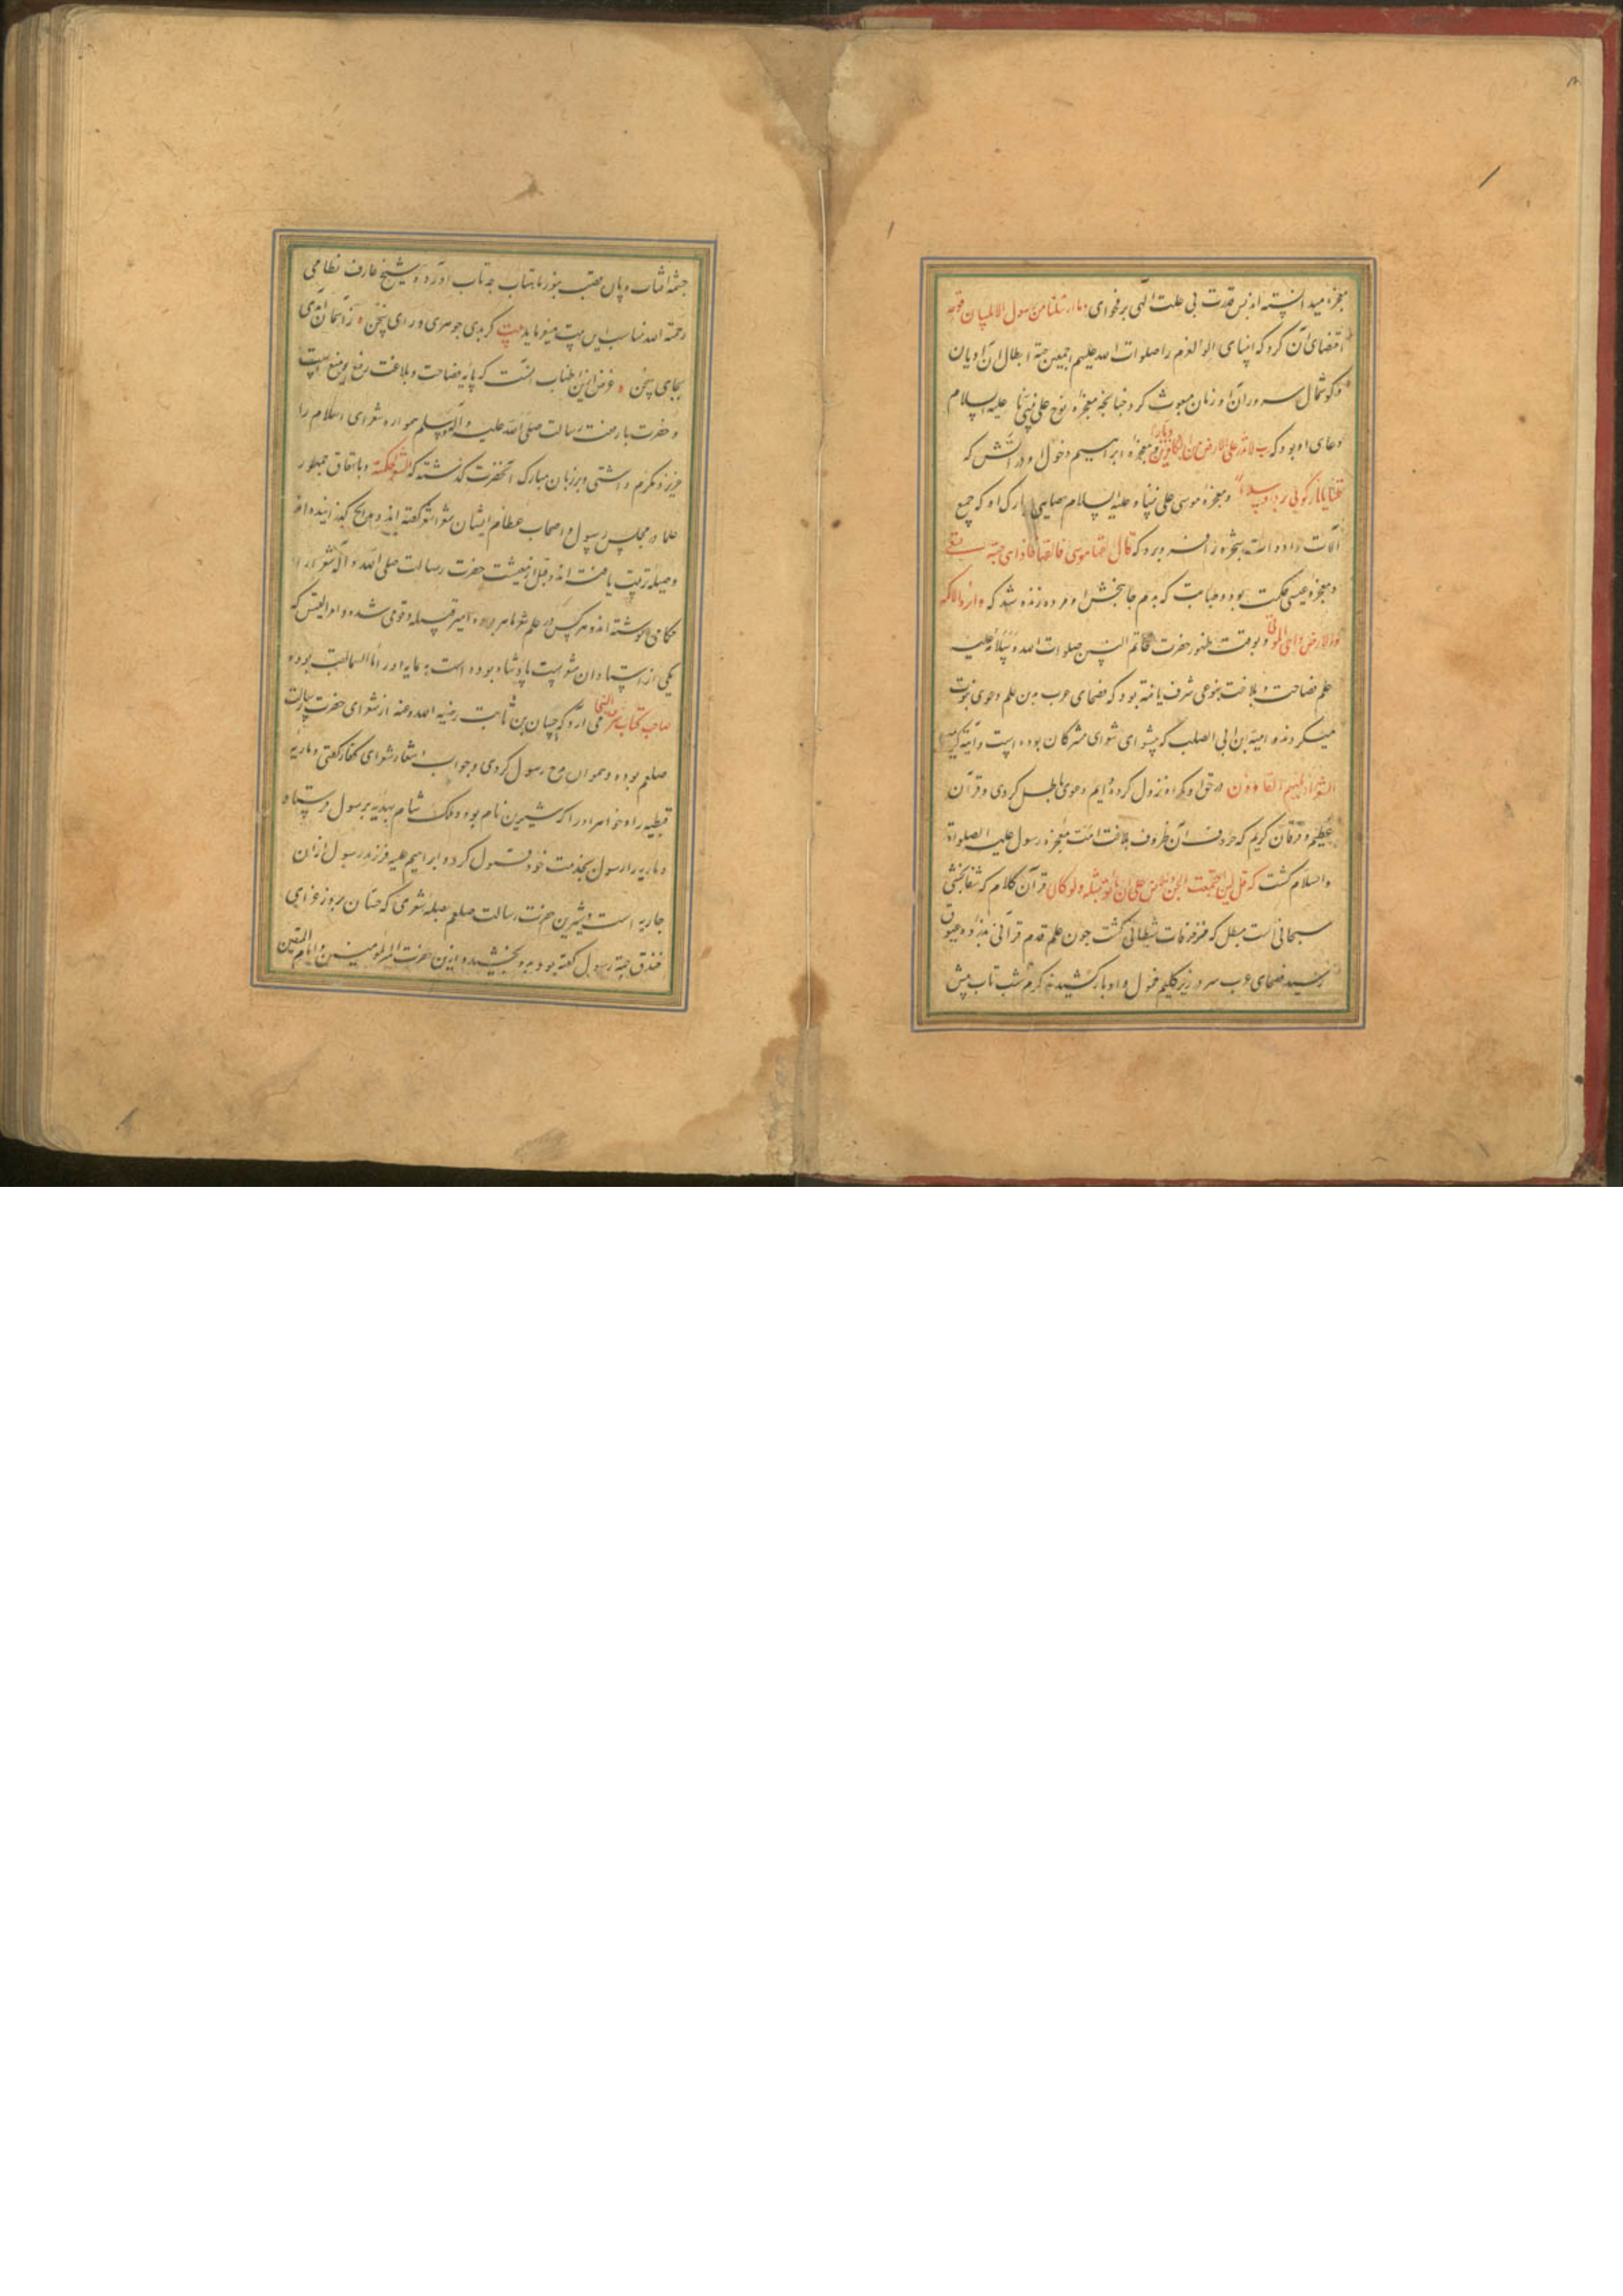 معجزه میدانسته اند پس قدرت بی علت الهی بر فحوای وما ارسلنا من رسول الا بلسان قومه
اقتضای آن کرد که انبیای اولوالعزم را صلوات الله علیهم اجمعین جهة ابطال آن ادیان
وگوشمال سروران آن زمان مبعوث کرد چنانچه معجزه نوح علی نبینا علیه السلام
دعای او بود که رب لا تذر علی الارض من الکافرین دیارا و معجزه ابراهیم دخول او در آتش که
قلنا یا نار کونی بردا وسلاما و معجزه موسی علی نبینا و علیه السلام عصایی بارک او که جمیع
آلات و ادوات سحره را فرو برد که قال القها موسی فالقیها فاذا هی حیة تسعی
و معجزه عیسی حکمت بود و طبابت که بدم جان بخش او مرده زنده شد که وابرئ الاکمه
والابرص واحی الموتی و بوقت ظهور حضرت خاتم النبیین صلوات الله وسلامه علیه
علم فصاحت و بلاغت بنوعی شرف یافته بود که فصحای عرب بدین علم دعوی نبوت
میکردند و امیة بن ابی الصلت که پیشوای شعرای مشرکان بوده است و آیة کریمه
الشعراء یتبعهم الغاوون در حق او و گروه او نزول کرده دایم دعوی باطل کردی و قرآن
عظیم و فرقان کریم که حروف آن ظروف بلاغت است معجزه رسول علیه الصلواة
والسلام گشت که قل لئن اجتمعت الانس والجن علی ان یاتوا بمثله ولو کان قرآن کلام که شفابخشی
سبحانی است مبطل که مزخرفات شیطانی گشت چون علم قدم قرآنی بذروه عیوق
رسید فصحای عرب سر در زیر گلیم خمول و ادبار کشیدند کرم شب تاب پیش
چشمه آفتاب و یان قصب بنور ماهتاب چه تاب آورد و شیخ عارف نظامی
رحمة الله مناسب این بیت میفرماید بیت گر بدی جوهری ورای سخن ° ز آسمان آمدی
بجای سخن ° غرض ازین اطناب آنست که پایه فصاحت و بلاغت رفیع و منیع است
و حضرت با رفعت رسالت صلی الله علیه وآله وسلم همواره شعرای اسلام را
عزیز و مکرم داشتی و بر زبان مبارک آنحضرت گذشته که الحکمة و باتفاق جمهور
علما در مجلس رسول و اصحاب عظام ایشان شعرا شعر گفته اند و مدایح گذرانیده اند
و صله تربیت یافته اند و قبل از بعثت حضرت رسالت صلی الله وآله شعر را
حکام نوشته اند و هر کس در علم شعر ماهر بوده امیر قبیله و قومی شده و امرالقیس که
یکی از استادان شعرست پادشاه بوده است
صاحب کتاب شرف النبی می آرد که حسان بن ثابت رضی الله عنه از شعرای حضرت رسالت
صلعم بوده و هموار مدح رسول کردی و جواب اشعار شعرای کفار گفتی و ماریه
قبطیه را و خواهر او را که شیرین نام بود و ملک شام بهدیه بر رسول فرستاد
و ماریه را رسول بخدمت خود قبول کرد و ابراهیم علیه فرزند رسول از آن
جاریه است و شیرین حضرت رسالت صلعم بصله شعری که حسان بروز غزای
خندق جهة رسول گفته بود بدو بخشید و ازین حضرت امیر المومنین و امام المتقین